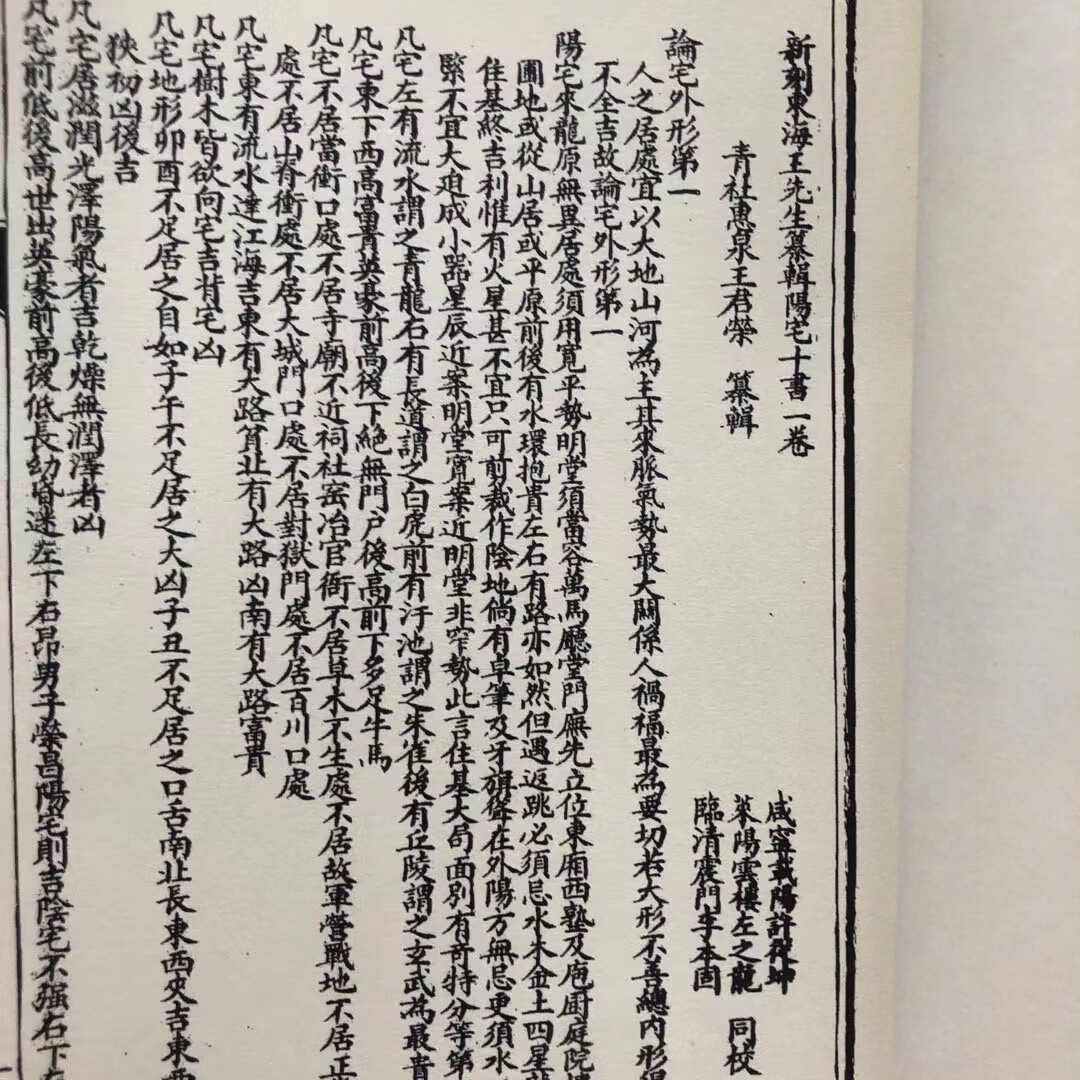 新刻東海王先生纂輯陽宅十書一卷
咸寧戴陽許
青社惠泉王君榮　纂輯
萊陽雲樓左之龍　同校
臨清震門李本固
論宅外形第一
人之居處宜以大地山河為主其來脈氣勢最大關係人禍福最為要切若大形不善總內形得
不全吉故論宅外形第一
陽宅來龍原無異居處須用寬平勢明堂須當容萬馬廳堂門廡先立位東廂西塾及庖廚庭院樓
圃地或從山居或平原前後有水環抱貴左右有路亦如然但遇返跳必須忌水木金土四星龍
住基終吉利惟有火星甚不宜只可剪裁作陰地倘有卓筆及牙旗聳在外陽方無忌更須水
緊不宜大迫成小器星辰近案明堂寬案近明堂非窄勢此言住基大局面別有奇特分等第
凡宅左有流水謂之青龍右有長道謂之白虎前有汙池謂之朱雀後有丘陵謂之玄武為最貴
凡宅東下西高富貴英豪前高後下絶無門户後高前下多足牛馬
凡宅不居當衝口處不居寺廟不近祠社窑冶官衙不居草木不生處不居故軍營戰地不居正
處不居山脊衝處不居大城門口處不居對獄門處不居百川口處
凡宅東有流水達江海吉東有大路貧北有大路凶南有大路富貴
凡宅樹木皆欲向宅吉背宅凶
凡宅地形卯酉不足居之自如子午不足居之大凶子丑不足居之口舌南北長東西夾吉東西
狹初凶後吉
凡宅居滋潤光澤陽氣者吉乾燥無潤澤者凶
凡宅前低後高世出英豪前高後低長幼昏迷左下右昂男子榮昌陽宅則吉陰宅不强右下左